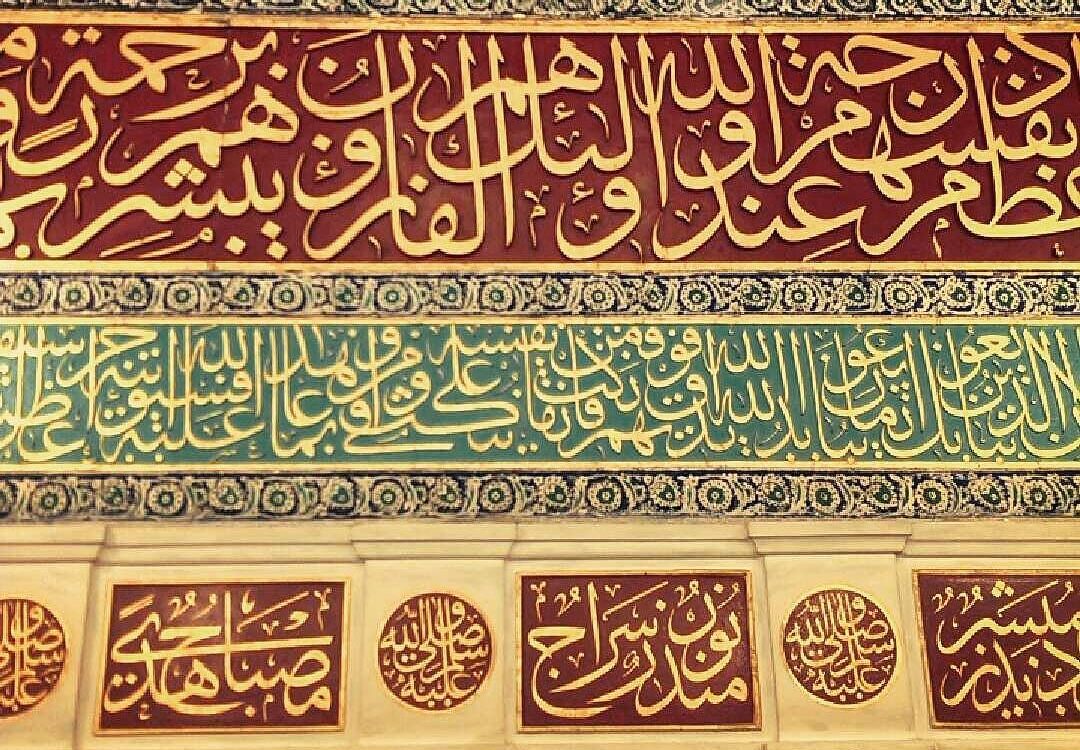 وأنفسهم أعظم درجة عند الله وأولئك هم الفائزون يبشرهم ربهم برحمة
إن الذين يبايعونك إنما يبايعون الله يد الله فوق أيديهم فمن نكث فإنما ينكث على نفسه ومن أوفى بما عاهد عليه الله فسيؤتيه أجرا عظيما
صلى الله عليه وسلم
منذر نور سراج
صلى الله عليه وسلم
مصباح هدى
صلى الله عليه وسلم